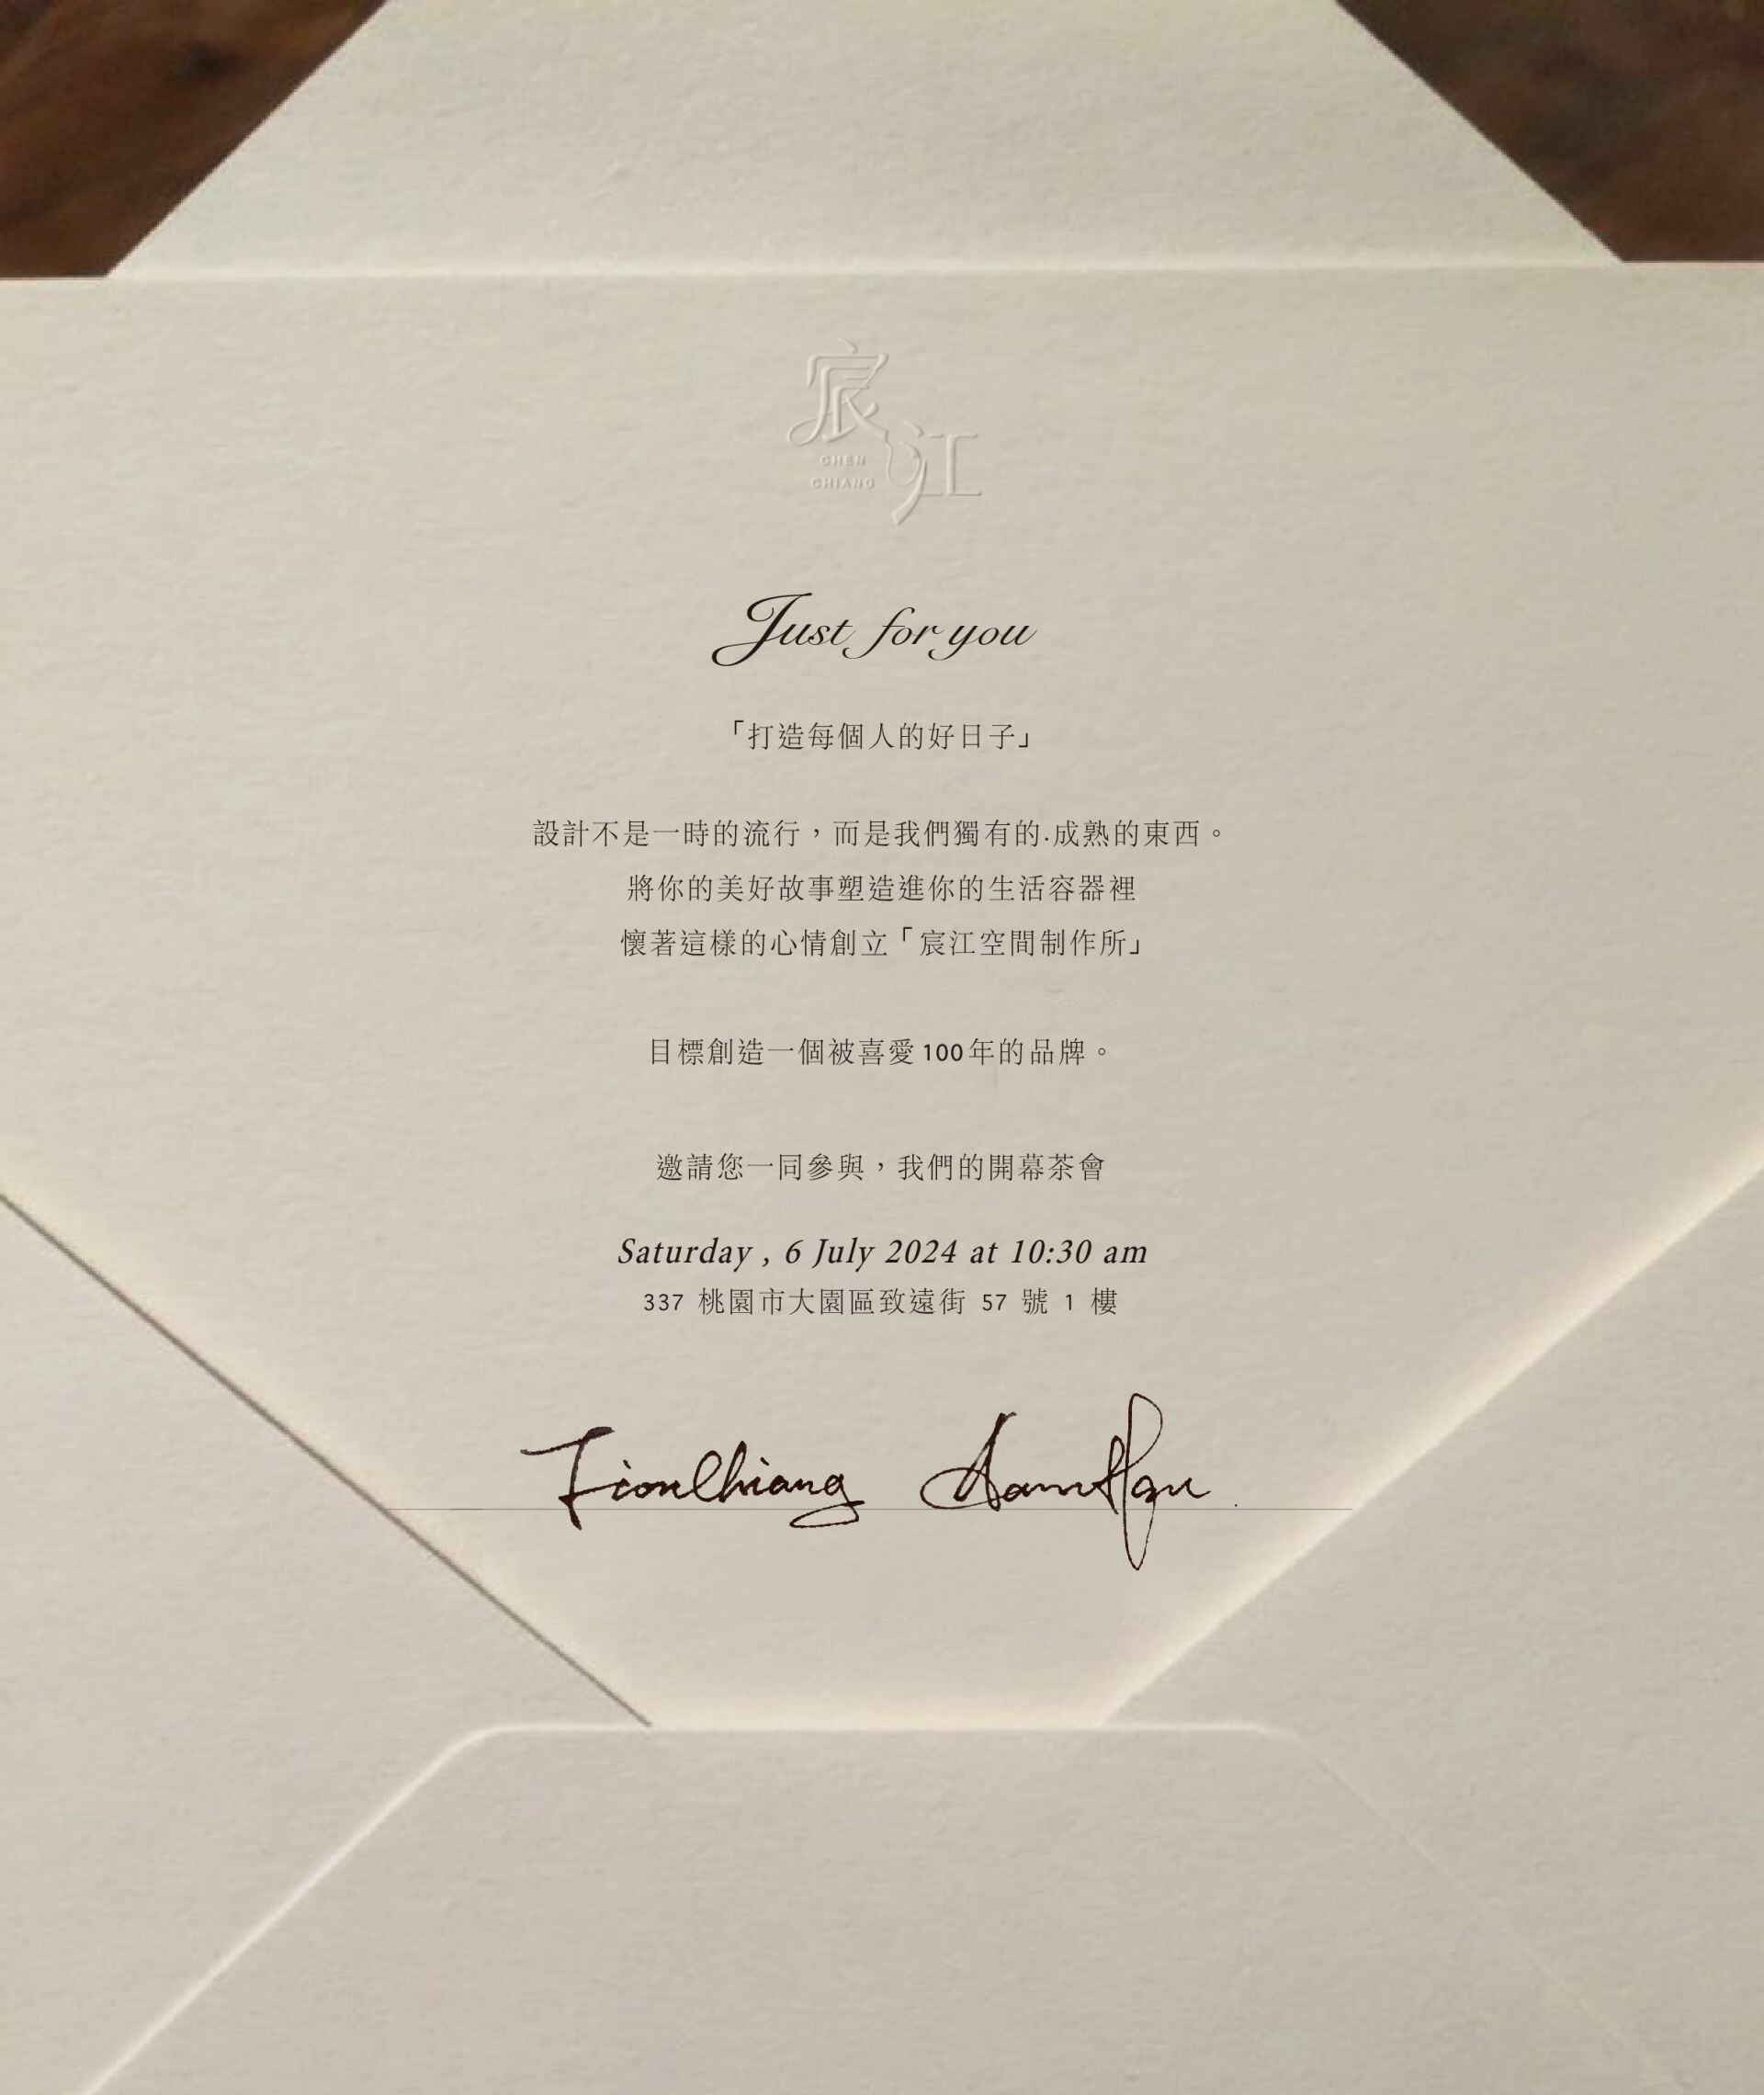 宸江
CHEN
CHIANG
Just for you
「打造每個人的好日子」
設計不是一時的流行，而是我們獨有的.成熟的東西。
將你的美好故事塑造進你的生活容器裡
懷著這樣的心情創立「宸江空間制作所」
目標創造一個被喜愛100年的品牌。
邀請您一同參與，我們的開幕茶會
Saturday , 6 July 2024 at 10:30 am
337 桃園市大園區致遠街 57 號 1 樓